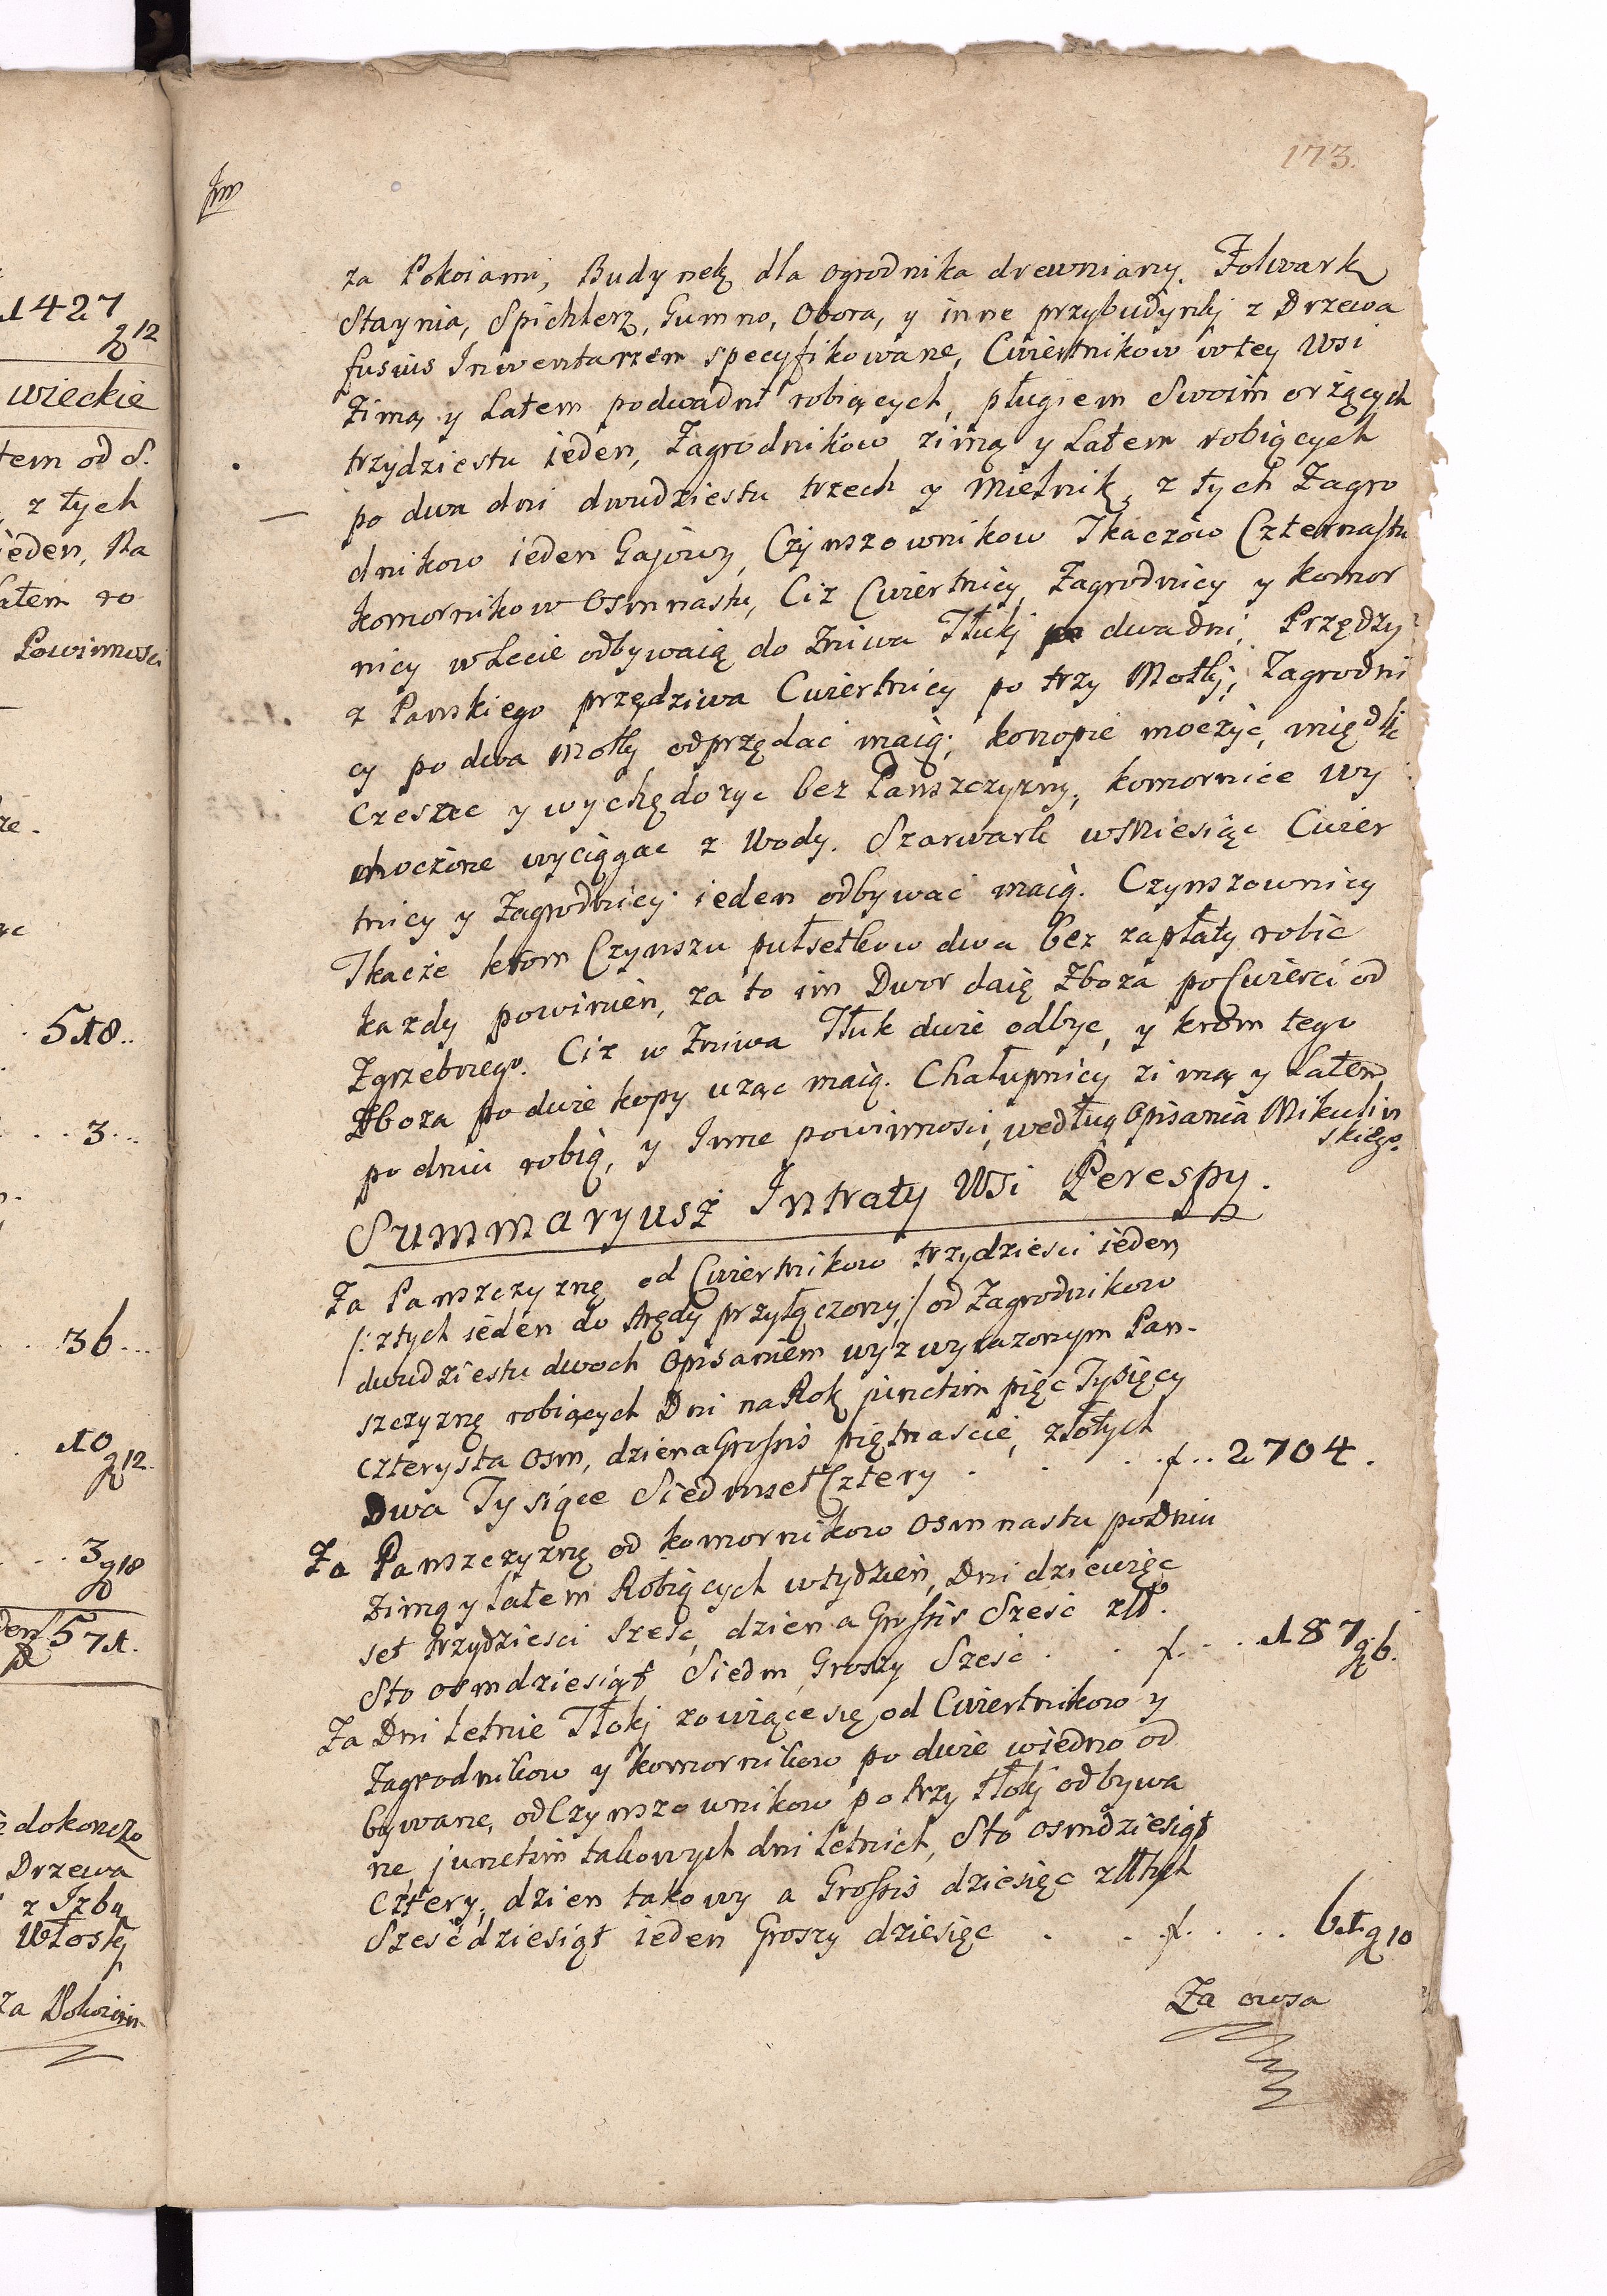 1427
g 12
wieckie
tem od S.
z tych
ieden, Ra
Latem ro
Powinnosci
518..
3...
36...
10
g 12.
3
g 18
571.
dokoncze
Drzewa
z Izbą
Włoskę
za Pokoiami
173.
za Pokoiami, Budynek dla ogrodnika drewniany. Folwark
Staynia, Spichlerz, Gumno, Obora, y inne przybudynki z Drzewa
fusius Inwentarzem specyfikowane, Cwiertnikow w tey Wsi
Zimą y Latem po dwa dni robiących, pługiem Swoim orzących
trzydziestu ieden, Zagrodnikow zimą y Latem robiących
po dwa dni dwudziestu trzech y Mielnik, z tych Zagro
dnikow ieden Gajowy, Czynszownikow Tkaczow Czternastu
Komornikow Osmnastu, Ciż Cwiertnicy, Zagrodnicy y Komor
nicy w Lecie odbywaią do Zniwa Tłuki po dwa dni, Przędzy
z Panskiego przędziwa Cwiertnicy po trzy Motki, Zagrodni
cy po dwa Motky odprzędac maią; konopie moczyc, międlic
Czesac y wychędozyc bez Panszczyzny, komornice wy
moczone wyciągac z Wody. Szarwark w Miesiąc Cwier
tnicy y Zagrodnicy ieden odbywać maią. Czynszownicy
Tkacze krom Czynszu pułsetkow dwa bez zapłaty robic
kazdy powinien, za to im Dwor daię Zboza po Cwierci od
Zgrzebnego. Ciż w Zniwa Tłuk dwie odbyc, y krom tego
Zboza po dwie kopy uząc maią. Chałupnicy zimą y Latem
po dniu robią, y Inne powinnosci według Opisania Mikulin
skiego.
Summaryusz Intraty Wsi Perespy.
Za Panszczyznę od Cwiertnikow trzydziesci ieden
/: z tych ieden do Arędy przyłączony :/ od Zagrodnikow
dwudziestu dwoch Opisaniem wyz wyrazonym Pan-
szczyznę robiących Dni na Rok junctim pięc Tysięcy
czterysta Osm, dzien a Grossis piętnascie, złotych
Dwa Tysiące Siedmset Cztery . . . f.. 2704.
Za Panszczyznę od komornikow Osmnastu po Dniu
zimą y Latem Robiących w tydzien, Dni dziewięc
set trzydziesci szesc, dzien a Grossis Szesc złł.
Sto osmdziesiąt Siedm Groszy Szesc . . f. . . 187 g 6.
Za Dni Letnie Tłoki zowiące się od Cwiertnikow y
Zagrodnikow y komornikow po dwie wiedno od
bywane, od Czynszownikow po trzy tłoki odbywa
ne, junctim takowych dni Letnich, Sto osmdziesiąt
cztery, dzien takowy a Grossis dziesięc złłtych
Szescdziesiąt ieden Groszy dziesięc . . f. . . . 61. g 10
Za owsa